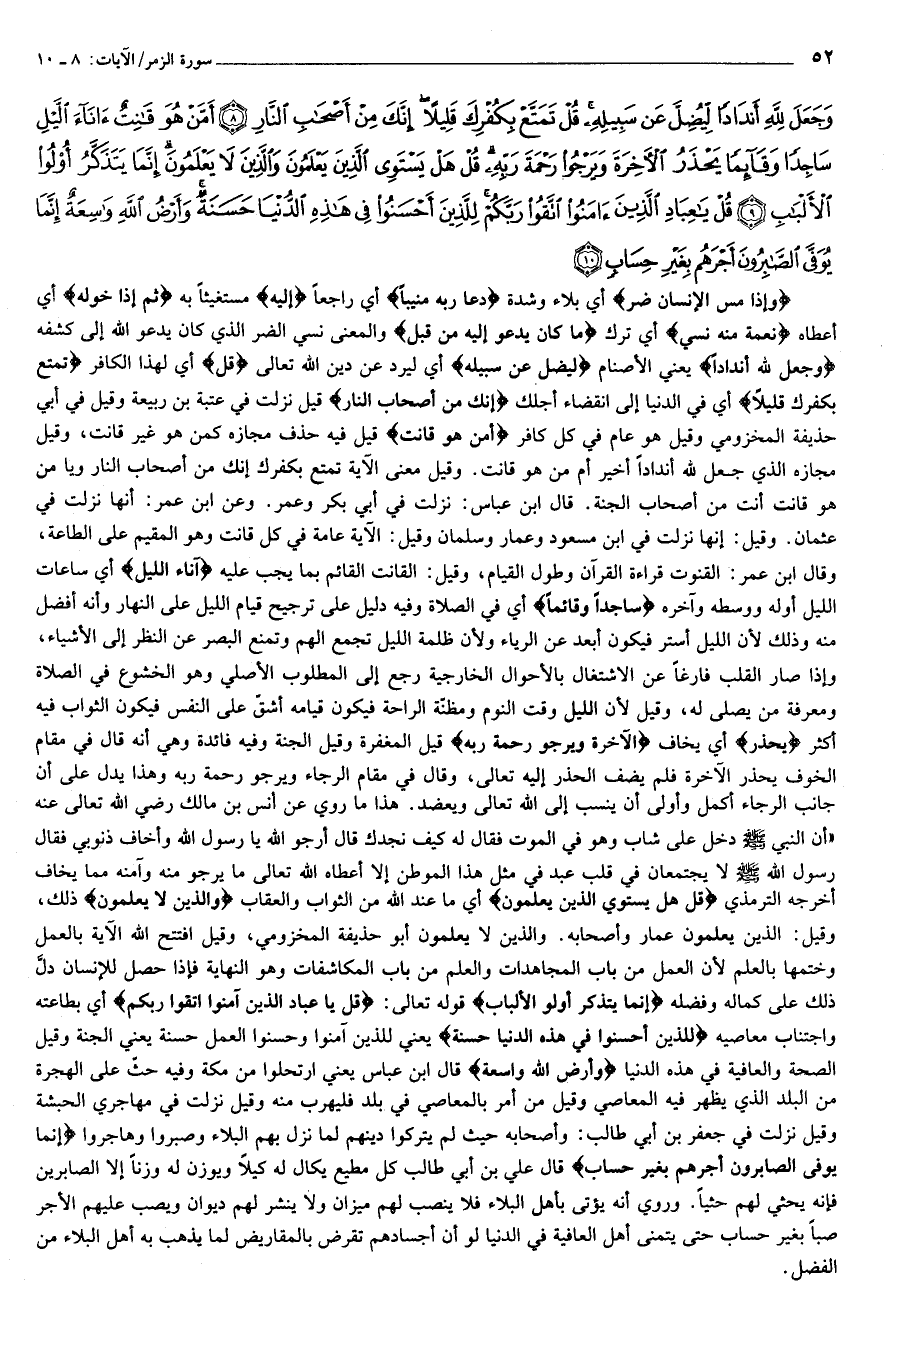 ٥٢ سورة الزمر/ الآيات: ٨ ـ ١٠
وَجَعَلَ لِلَّهِ أَندَادًا لِّيُضِلَّ عَن سَبِيلِهِۦ قُلْ تَمَتَّعْ بِكُفْرِكَ قَلِيلًا إِنَّكَ مِنْ أَصْحَٰبِ ٱلنَّارِ ﴿٨﴾ أَمَّنْ هُوَ قَٰنِتٌ ءَانَآءَ ٱلَّيْلِ
سَاجِدًا وَقَآئِمًا يَحْذَرُ ٱلْءَاخِرَةَ وَيَرْجُوا۟ رَحْمَةَ رَبِّهِۦ قُلْ هَلْ يَسْتَوِى ٱلَّذِينَ يَعْلَمُونَ وَٱلَّذِينَ لَا يَعْلَمُونَ إِنَّمَا يَتَذَكَّرُ أُو۟لُوا۟
ٱلْأَلْبَٰبِ ﴿٩﴾ قُلْ يَٰعِبَادِ ٱلَّذِينَ ءَامَنُوا۟ ٱتَّقُوا۟ رَبَّكُمْ لِلَّذِينَ أَحْسَنُوا۟ فِى هَٰذِهِ ٱلدُّنْيَا حَسَنَةٌ وَأَرْضُ ٱللَّهِ وَٰسِعَةٌ إِنَّمَا
يُوَفَّى ٱلصَّٰبِرُونَ أَجْرَهُم بِغَيْرِ حِسَابٍ ﴿١٠﴾
﴿وإذا مس الإنسان ضر﴾ أي بلاء وشدة ﴿دعا ربه منيباً﴾ أي راجعاً ﴿إليه﴾ مستغيثاً به ﴿ثم إذا خوله﴾ أي
أعطاه ﴿نعمة منه نسي﴾ أي ترك ﴿ما كان يدعو إليه من قبل﴾ والمعنى نسي الضر الذي كان يدعو الله إلى كشفه
﴿وجعل لله أنداداً﴾ يعني الأصنام ﴿ليضل عن سبيله﴾ أي ليرد عن دين الله تعالى ﴿قل﴾ أي لهذا الكافر ﴿تمتع
بكفرك قليلاً﴾ أي في الدنيا إلى انقضاء أجلك ﴿إنك من أصحاب النار﴾ قيل نزلت في عتبة بن ربيعة وقيل في أبي
حذيفة المخزومي وقيل هو عام في كل كافر ﴿أمن هو قانت﴾ قيل فيه حذف مجازه كمن هو غير قانت، وقيل
مجازه الذي جعل لله أنداداً أخير أم من هو قانت. وقيل معنى الآية تمتع بكفرك إنك من أصحاب النار ويا من
هو قانت أنت من أصحاب الجنة. قال ابن عباس: نزلت في أبي بكر وعمر. وعن ابن عمر: أنها نزلت في
عثمان. وقيل: إنها نزلت في ابن مسعود وعمار وسلمان وقيل: الآية عامة في كل قانت وهو المقيم على الطاعة،
وقال ابن عمر: القنوت قراءة القرآن وطول القيام، وقيل: القانت القائم بما يجب عليه ﴿آناء الليل﴾ أي ساعات
الليل أوله ووسطه وآخره ﴿ساجداً وقائماً﴾ أي في الصلاة وفيه دليل على ترجيح قيام الليل على النهار وأنه أفضل
منه وذلك لأن الليل أستر فيكون أبعد عن الرياء ولأن ظلمة الليل تجمع الهم وتمنع البصر عن النظر إلى الأشياء،
وإذا صار القلب فارغاً عن الاشتغال بالأحوال الخارجية رجع إلى المطلوب الأصلي وهو الخشوع في الصلاة
ومعرفة من يصلى له، وقيل لأن الليل وقت النوم ومظنّة الراحة فيكون قيامه أشقّ على النفس فيكون الثواب فيه
أكثر ﴿يحذر﴾ أي يخاف ﴿الآخرة ويرجو رحمة ربه﴾ قيل المغفرة وقيل الجنة وفيه فائدة وهي أنه قال في مقام
الخوف يحذر الآخرة فلم يضف الحذر إليه تعالى، وقال في مقام الرجاء ويرجو رحمة ربه وهذا يدل على أن
جانب الرجاء أكمل وأولى أن ينسب إلى الله تعالى ويعضد. هذا ما روي عن أنس بن مالك رضي الله تعالى عنه
«أن النبي ﷺ دخل على شاب وهو في الموت فقال له كيف نجدك قال أرجو الله يا رسول الله وأخاف ذنوبي فقال
رسول الله ﷺ لا يجتمعان في قلب عبد في مثل هذا الموطن إلا أعطاه الله تعالى ما يرجو منه وآمنه مما يخاف
أخرجه الترمذي ﴿قل هل يستوي الذين يعلمون﴾ أي ما عند الله من الثواب والعقاب ﴿والذين لا يعلمون﴾ ذلك،
وقيل: الذين يعلمون عمار وأصحابه. والذين لا يعلمون أبو حذيفة المخزومي، وقيل افتتح الله الآية بالعمل
وختمها بالعلم لأن العمل من باب المجاهدات والعلم من باب المكاشفات وهو النهاية فإذا حصل للإنسان دلَّ
ذلك على كماله وفضله ﴿إنما يتذكر أولو الألباب﴾ قوله تعالى: ﴿قل يا عباد الذين آمنوا اتقوا ربكم﴾ أي بطاعته
واجتناب معاصيه ﴿للذين أحسنوا في هذه الدنيا حسنة﴾ يعني للذين آمنوا وحسنوا العمل حسنة يعني الجنة وقيل
الصحة والعافية في هذه الدنيا ﴿وأرض الله واسعة﴾ قال ابن عباس يعني ارتحلوا من مكة وفيه حثّ على الهجرة
من البلد الذي يظهر فيه المعاصي وقيل من أمر بالمعاصي في بلد فليهرب منه وقيل نزلت في مهاجري الحبشة
وقيل نزلت في جعفر بن أبي طالب: وأصحابه حيث لم يتركوا دينهم لما نزل بهم البلاء وصبروا وهاجروا ﴿إنما
يوفى الصابرون أجرهم بغير حساب﴾ قال علي بن أبي طالب كل مطيع يكال له كيلاً ويوزن له وزناً إلا الصابرين
فإنه يحثي لهم حثياً. وروي أنه يؤتى بأهل البلاء فلا ينصب لهم ميزان ولا ينشر لهم ديوان ويصب عليهم الأجر
صباً بغير حساب حتى يتمنى أهل العافية في الدنيا لو أن أجسادهم تقرض بالمقاريض لما يذهب به أهل البلاء من
الفضل.